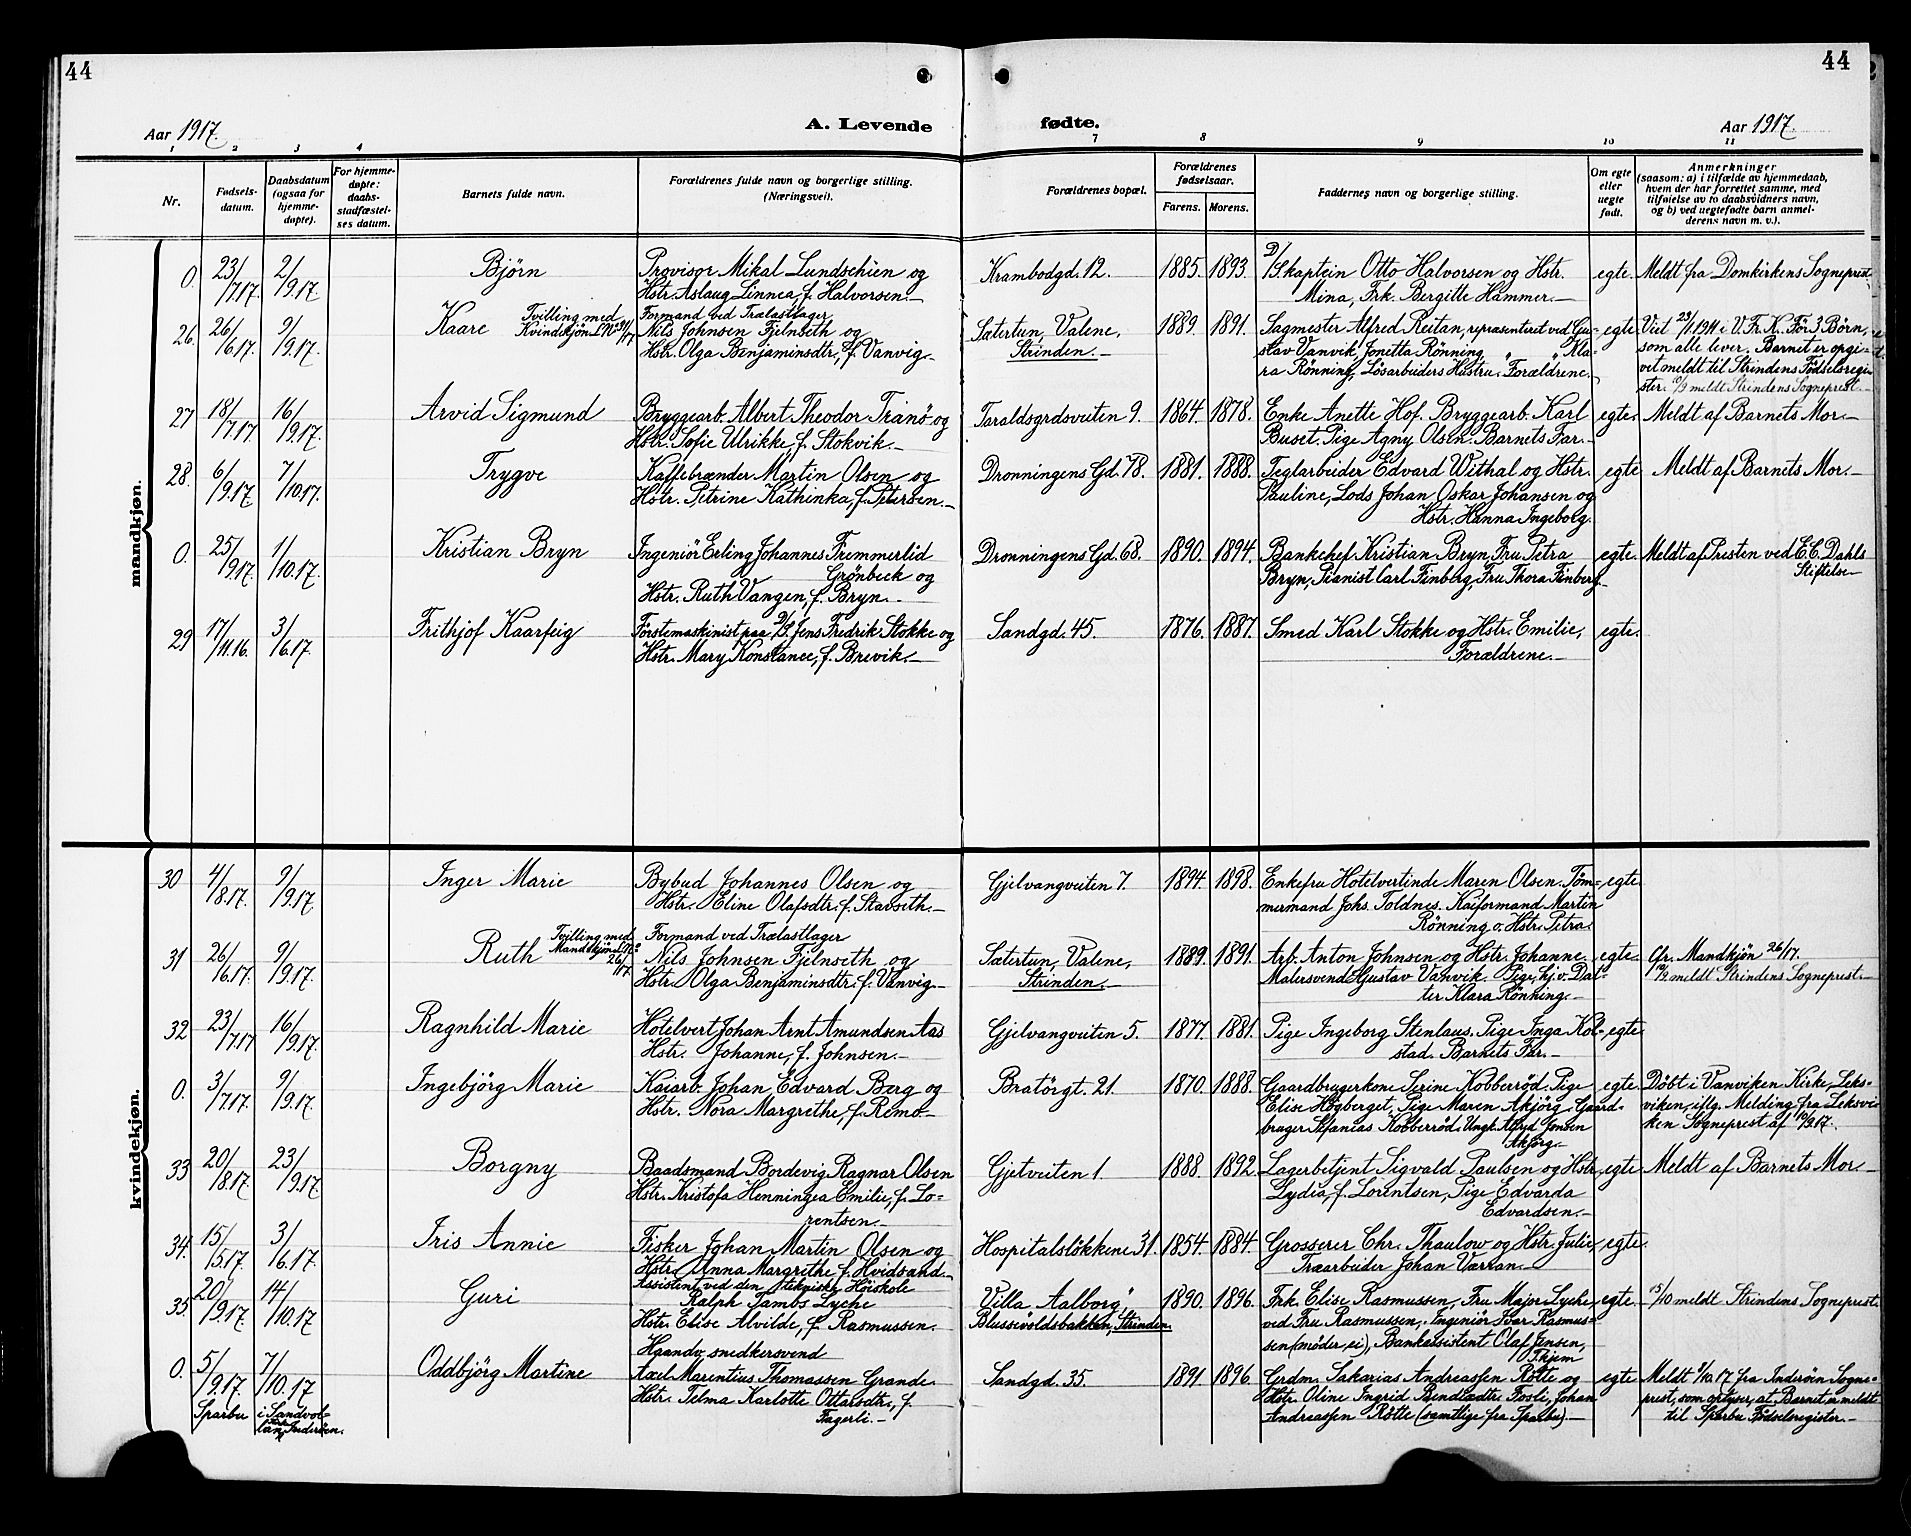 44
44
Aar 1917.
A. Levende
fødte.
Aar 1917.
1 2 3 4 7 8 9 10 11
Nr.
Fødsels-
datum.
Daabsdatum
(ogsaa for
hjemme-
døpte).
For hjemme-
døpte:
daabs-
stadfæstel-
ses datum.
Barnets fulde navn.
Forældrenes fulde navn og borgerlige stilling.
(Næringsvei).
Forældrenes bopæl.
Forældrenes
fødselsaar.
Farens. Morens.
Faddernes navn og borgerlige stilling.
Om egte
eller
uegte
født.
Anmerkninger
(saasom: a) i tilfælde av hjemmedaab,
hvem der har forrettet samme, med
tilføielse av to daabsvidners navn,
og b) ved uegtefødte barn anmel-
derens navn m. v.).
mandkjøn.
0. 23/7.17. 2/9.17. Bjørn
Provisor Mikal Lundschien og
Hstr. Aslaug Linnea, f. Halvorsen.
Krambodgd. 12. 1885. 1893.
D/S kaptein Otto Halvorsen og Hstr.
Mina, Frk. Bergitte Hammer.
egte. Meldt fra Domkirkens Sogneprest.
26. 26/6.17. 9/9.17. Kaare
Tvilling med
Kvindekjøn L.No 31/17
Formand ved Trælastlager
Nils Johnsen Fjelnseth og
Hstr. Olga Benjaminsdtr., f. Vanvig.
Sætertun, Valene,
Strinden.
1889. 1891.
Sagmester Alfred Reitan, repræsentaret ved Gu-
stav Vanvik, Jonetta Rönning " " Kla-
ra Rönning, Lösarbeiders Hustru. Forældrene.
egte. Viet 23/1.1911 i V. Fr. K. Før 3 Börn,
som alle lever. Barnet er opgi-
vet meldt til Strindens Födselsregi-
ster. 9/9 meldt Strindens Sogneprest.
27 18/7.17. 16/9.17. Arvid Sigmund
Bryggearb. Albert Theodor Tranö og
Hstr. Sofie Ulrikke, f. Stokvik.
Taraldsgrdsveiten 9. 1864. 1878.
Enke Anette Hof. Bryggearb. Karl
Buset. Pige Agny Olsen. Barnets Far.
egte. Meldt af Barnets Mor.
28. 6/9.17. 7/10.17. Trygve
Kaffebrænder Martin Olsen og
Hstr. Petrine Kathinka, f. Petersen.
Dronningens Gd. 78. 1881. 1888.
Teglarbeider Edvard Withal og Hstr.
Pauline, Lods Johan Oskar Johansen og
Hstr. Hanna Ingeborg.
egte Meldt af Barnets Mor.
0. 25/9.17. 1/10.17. Kristian Bryn
Ingeniör Erling Johannes Fremmerlid
Grönbeck og
Hstr. Ruth Vangen, f. Bryn.
Dronningens Gd. 68. 1890. 1894.
Bankchef Kristian Bryn, Fru Petra
Bryn, Pianist Carl Finberg, Fru Thora Finberg
egte. Meldt af Presten ved E. C. Dahls
Stiftelse
29 17/11.16. 3/6.17. Frithjof Kaarfeig
Förstemaskinist paa D/S. Jens Fredrik Stokke og
Hstr. Mary Konstance, f. Brevik.
Sandgd. 45. 1876. 1887.
Smed Karl Stokke og Hstr. Emilie,
Forældrene.
egte.
kvindekjøn.
30 4/8.17. 9/9.17. Inger Marie
Bybud Johannes Olsen og
Hstr. Eline Olafsdtr. f. Stavseth.
Gjelvangveiten 7. 1894. 1898.
Enkefru Hotelvertinde Maren Olsen. Töm-
mermand Johs. Toldnes. Kaiformand Martin
Rönning o. Hstr. Petra.
egte.
31 26/6.17. 9/9.17. Ruth
Tvilling med
Mandskjøn L.No
26/17.
Formand ved Trælastlager
Nils Johnsen Fjelnseth og
Hstr. Olga Benjaminsdtr. f. Vanvig.
Sætertun, Valene,
Strinden.
1889. 1891.
Arb. Anton Johnsen og Hstr. Johanne
Malersvend Gustav Vanvik. Pige, hj. v. Dat-
ter Klara Rönning.
egte. Cfr. Mandkjön 26/17.
10/9 meldt Strindens Sogneprest.
32 23/7.17 16/9.17. Ragnhild Marie
Hotelvert Johan Arnt Amundsen Aas
Hstr. Johanne, f. Johnsen.
Gjelvangveiten 5. 1877. 1881.
Pige Ingeborg Stenlaus. Pige Inga Kol-
stad. Barnets Far.
egte.
0. 3/7.17. 9/9.17. Ingebjörg Marie
Kaiarb. Johan Edvard Berg og
Hstr. Nora Margrethe, f. Remo.
Bratörgt. 21. 1870. 1888.
Gaardbrugerkone Serine Kobberröd. Pige
Elise Högberget, Pige Maren Akjörg. Gaard-
bruger Stefanias Kobberröd. Ungk. Alfred Jensen
Akjörg.
egte. Döbt i Vanviken Kirke, Leks-
viken, iflg. Melding fra Leksvi-
ken Sogneprest af 10/9.17.
33 20/8.17. 23/9.17. Borgny
Baadsmand Bordevig Ragnar Olsen
Hstr. Kristofa Henningea Emilie, f. Lo-
rentsen.
Gjetveiten 1 1888. 1892.
Lagerbetjent Sigvald Paulsen og Hstr.
Lydia, f. Lorentsen, Pige Edvarda
Edvardsen.
egte. Meldt af Barnets Mor.
34. 15/5.17. 3/6.17. Iris Annie
Fisker Johan Martin Olsen og
Hstr. Anna Margrethe f. Hvidsand.
Hospitalslökkene 31. 1854. 1884.
Grosserer Chr. Thaulow og Hstr. Julie,
Træarbeider Johan Værran.
egte.
35. 20/9.17. 14/10.17 Guri
Assistent ved den tekniske Höiskole
Ralph Tambs Lyche
Hstr. Elise Alvilde, f. Rasmussen.
Villa "Aalborg",
Blussevoldsbakken, Strinden.
1890. 1896.
Frk. Elise Rasmussen, Fru Major Lyche,
ved Fru Rasmussen, Ingeniör Ivar Rasmus-
sen (möder ei), Bankassistent Olaf Jensen,
Thjem
egte. 15/10 meldt Strindens Sogneprest.
0. 5/9.17. 7/10.17 Oddbjörg Martine
Sparbu i Sandvol-
lan, Inderöen.
Haandv. snedkersvend
Axel Marentius Thomassen Grande
Hstr. Telma Karlotte Ottarsdtr., f.
Fagerli.
Sandgd. 35. 1891 1896.
Grdm. Sakarias Andreassen Rötte og
Hstr. Oline, Ingrid Bendtædtr. Fosli, Johan
Andreassen Rötte (samtlige fra Sparbu)
egte Meldt 8/10 17 fra Inderöen Sogne-
prest, som oplyser, at Barnet er meldt
til Sparbu Födselsregister.